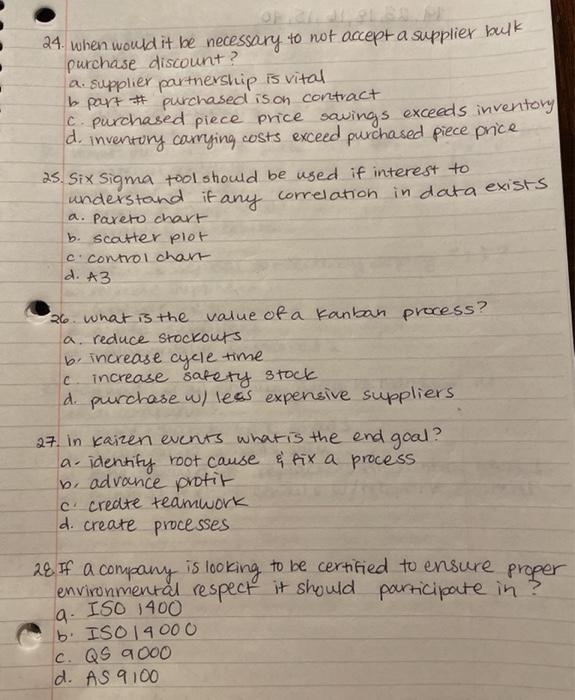 24. when would it be necessary to not accept a supplier bulk
purchase discount?
a. supplier partnership is vital
b part # purchased is on contract
c. purchased piece price savings exceeds inventory
d. inventory carrying costs exceed purchased piece price
25. Six Sigma tool should be used if interest to
understand if any correlation in data exists
a. Pareto chart
b. scatter plot
c. control chart
d. A3
26. what is the value of a Kanban process?
a. reduce stockouts
b. increase cycle time
c. increase safety stock
d. purchase w/ less expensive suppliers
27. In kaizen events what is the end goal?
a. identify root cause & fix a process
b. advance profit
c. create teamwork
d. create processes
28. If a company is looking to be certified to ensure proper
environmental respect it should participate in?
a. ISO 1400
b. ISO 14000
c. QS 9000
d. AS 9100